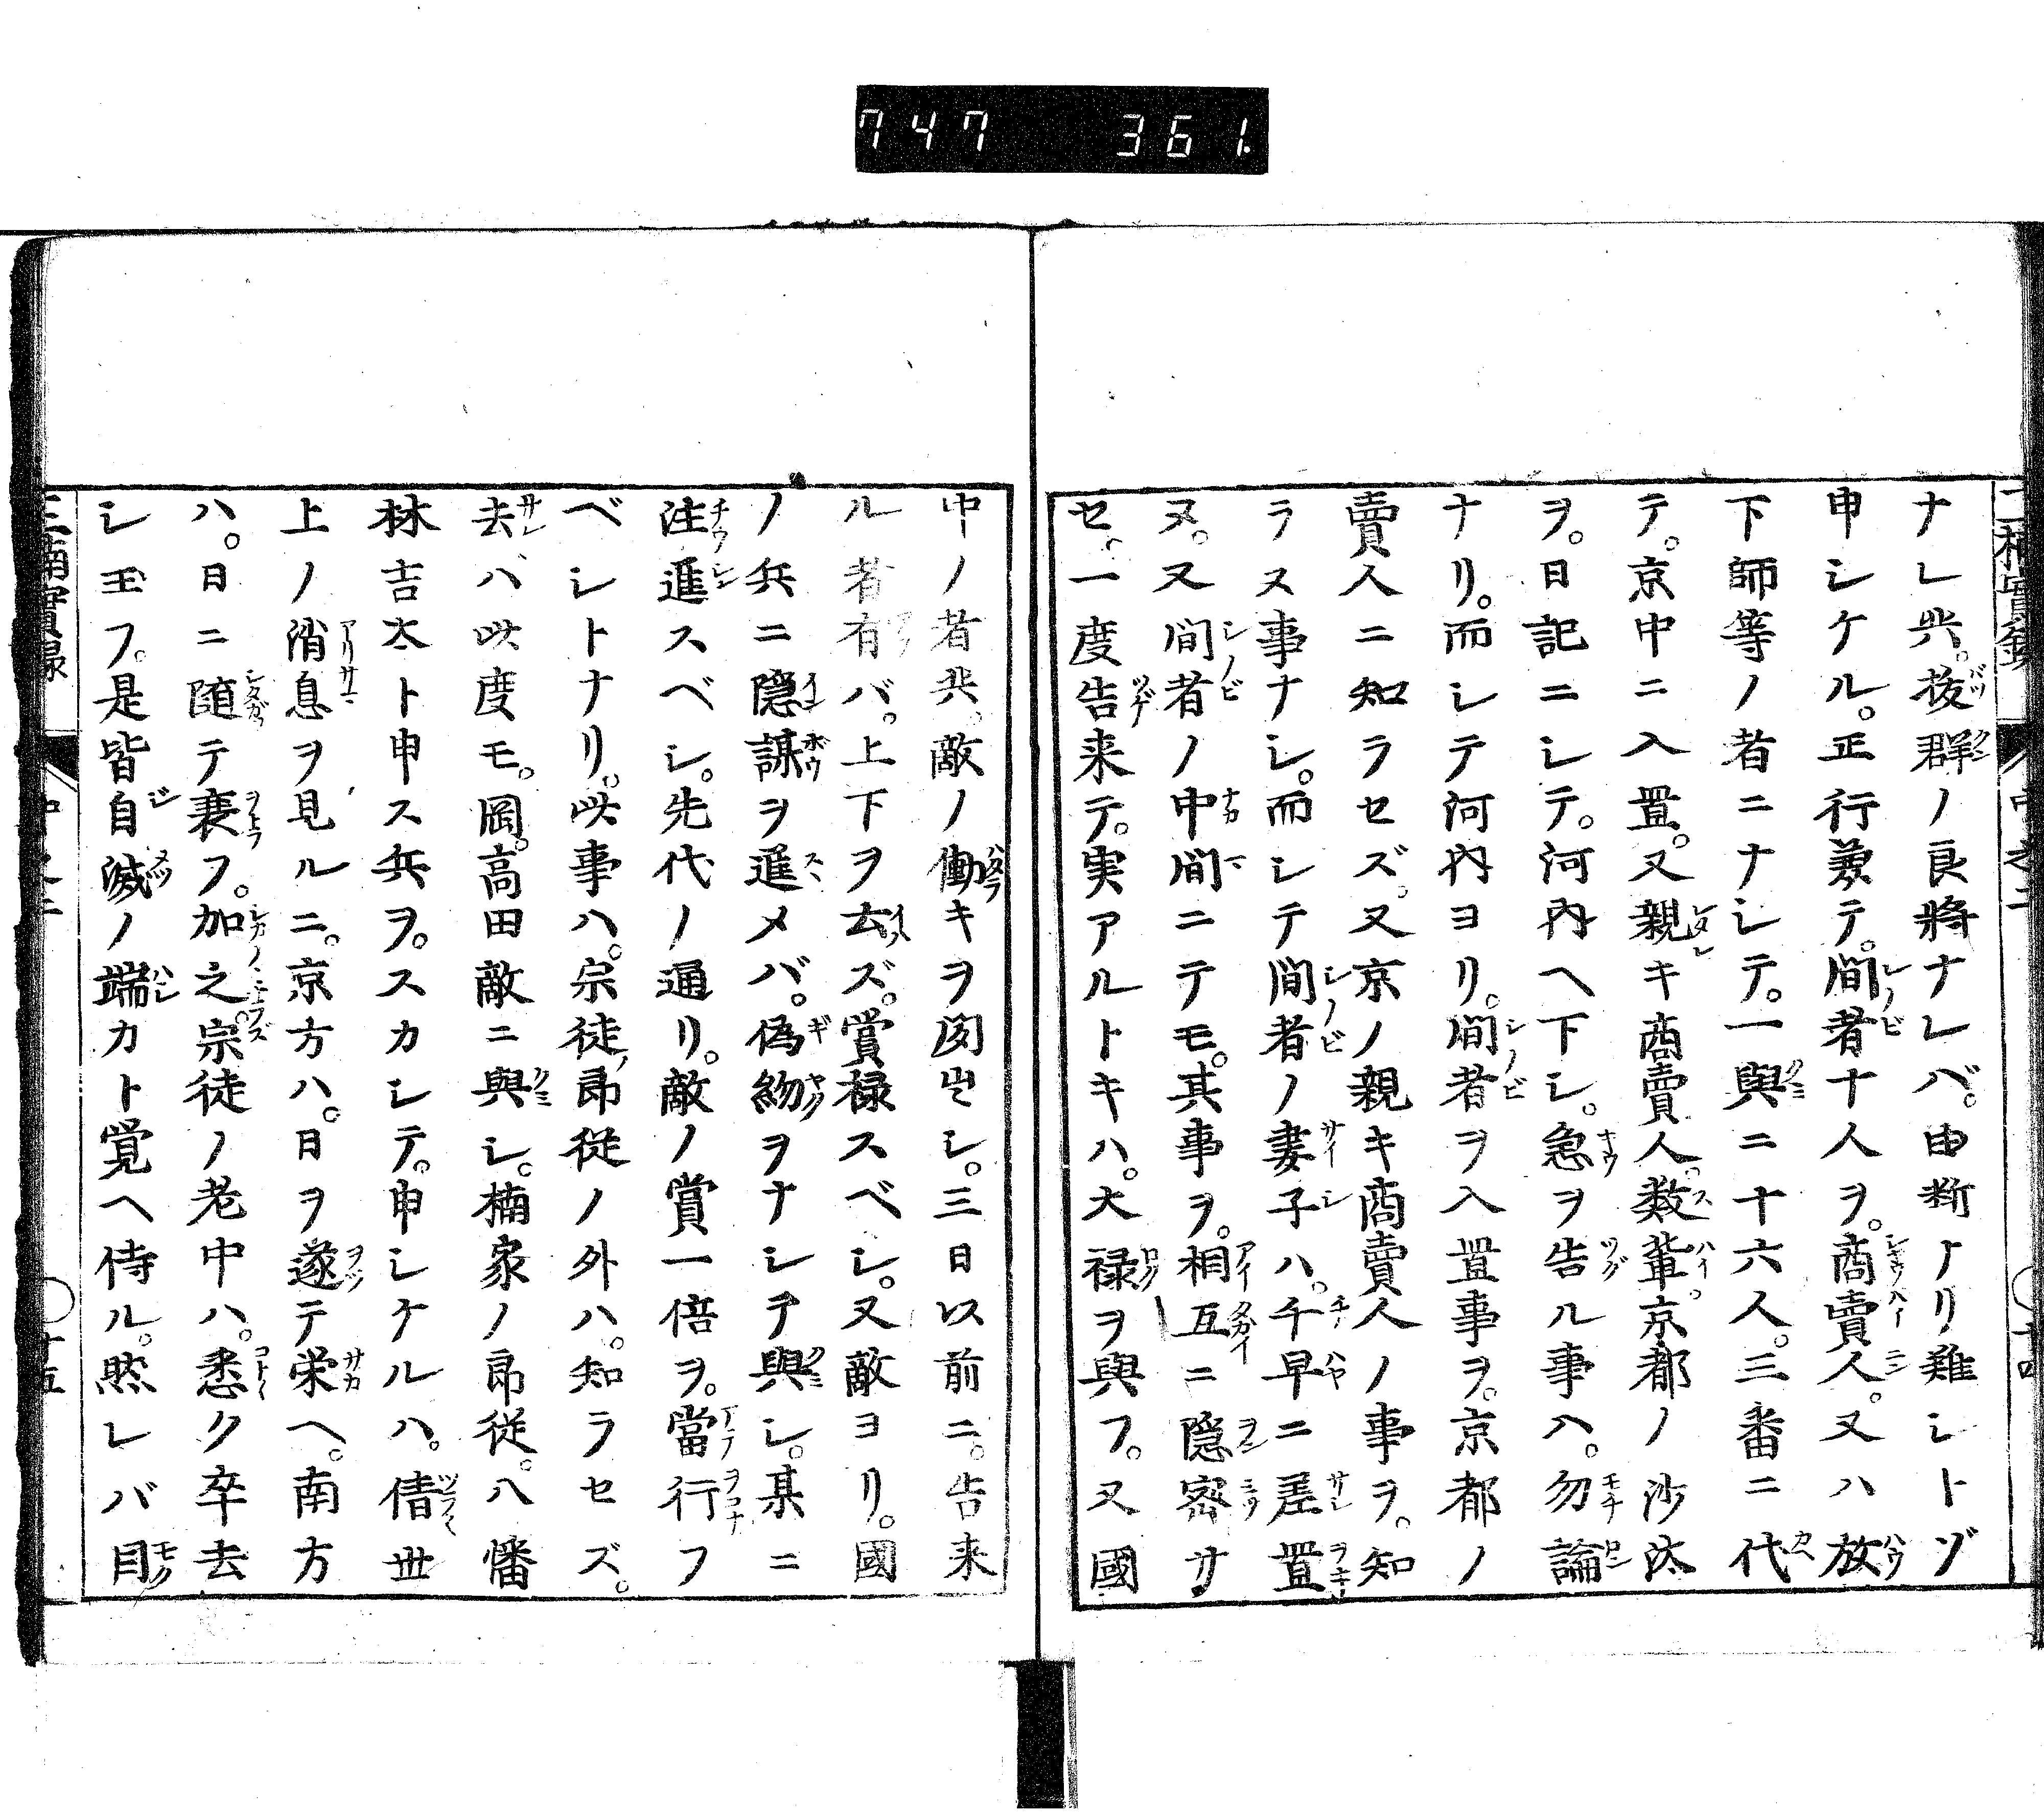 747 361.
ナレ共。抜群ノ良將ナレバ。由断ナリ難シトゾ
申シケル。正行兼テ。間者十人ヲ。商賣人。又ハ放
下師等ノ者ニナシテ。一與ニ十六人。三番ニ代
テ。京中ニ入置。又親キ商賣人。数輩。京都ノ沙汰
ヲ。日記ニシテ。河内ヘ下シ。急ヲ告ル事ハ。勿論
ナリ。而シテ河内ヨリ。間者ヲ入置事ヲ。京都ノ
賣人ニ知ラセズ。又京ノ親キ商賣人ノ事ヲ。知
ラヌ事ナシ。而シテ間者ノ妻子ハ。千早ニ差置
ヌ。又間者ノ中間ニテモ。其事ヲ。相互ニ隠密サ
セ。一度告来テ。実アルトキハ。大禄ヲ與フ。又國
中ノ者共。敵ノ働キヲ聞出シ。三日以前ニ。告来
ル者有バ。上下ヲ云ズ。賞禄スベシ。又敵ヨリ。國
ノ兵ニ隠謀ヲ進メバ。偽約ヲナシテ與シ。某ニ
注進スベシ。先代ノ通リ。敵ノ賞一倍ヲ。當行フ
ベシトナリ。此事ハ。宗徒ノ郎従ノ外ハ。知ラセズ。
去バ此度モ。岡。高田敵ニ與シ。楠家ノ郎従。八幡
林吉太ト申ス兵ヲ。スカシテ。申シケルハ。倩世
上ノ消息ヲ見ルニ。京方ハ。日ヲ遂テ栄ヘ。南方
ハ。日ニ随テ衰フ。加之。宗徒ノ老中ハ。悉ク卒去
シ玉フ。是皆自滅ノ端カト覚ヘ侍ル。然レバ目
三楠實録
十五